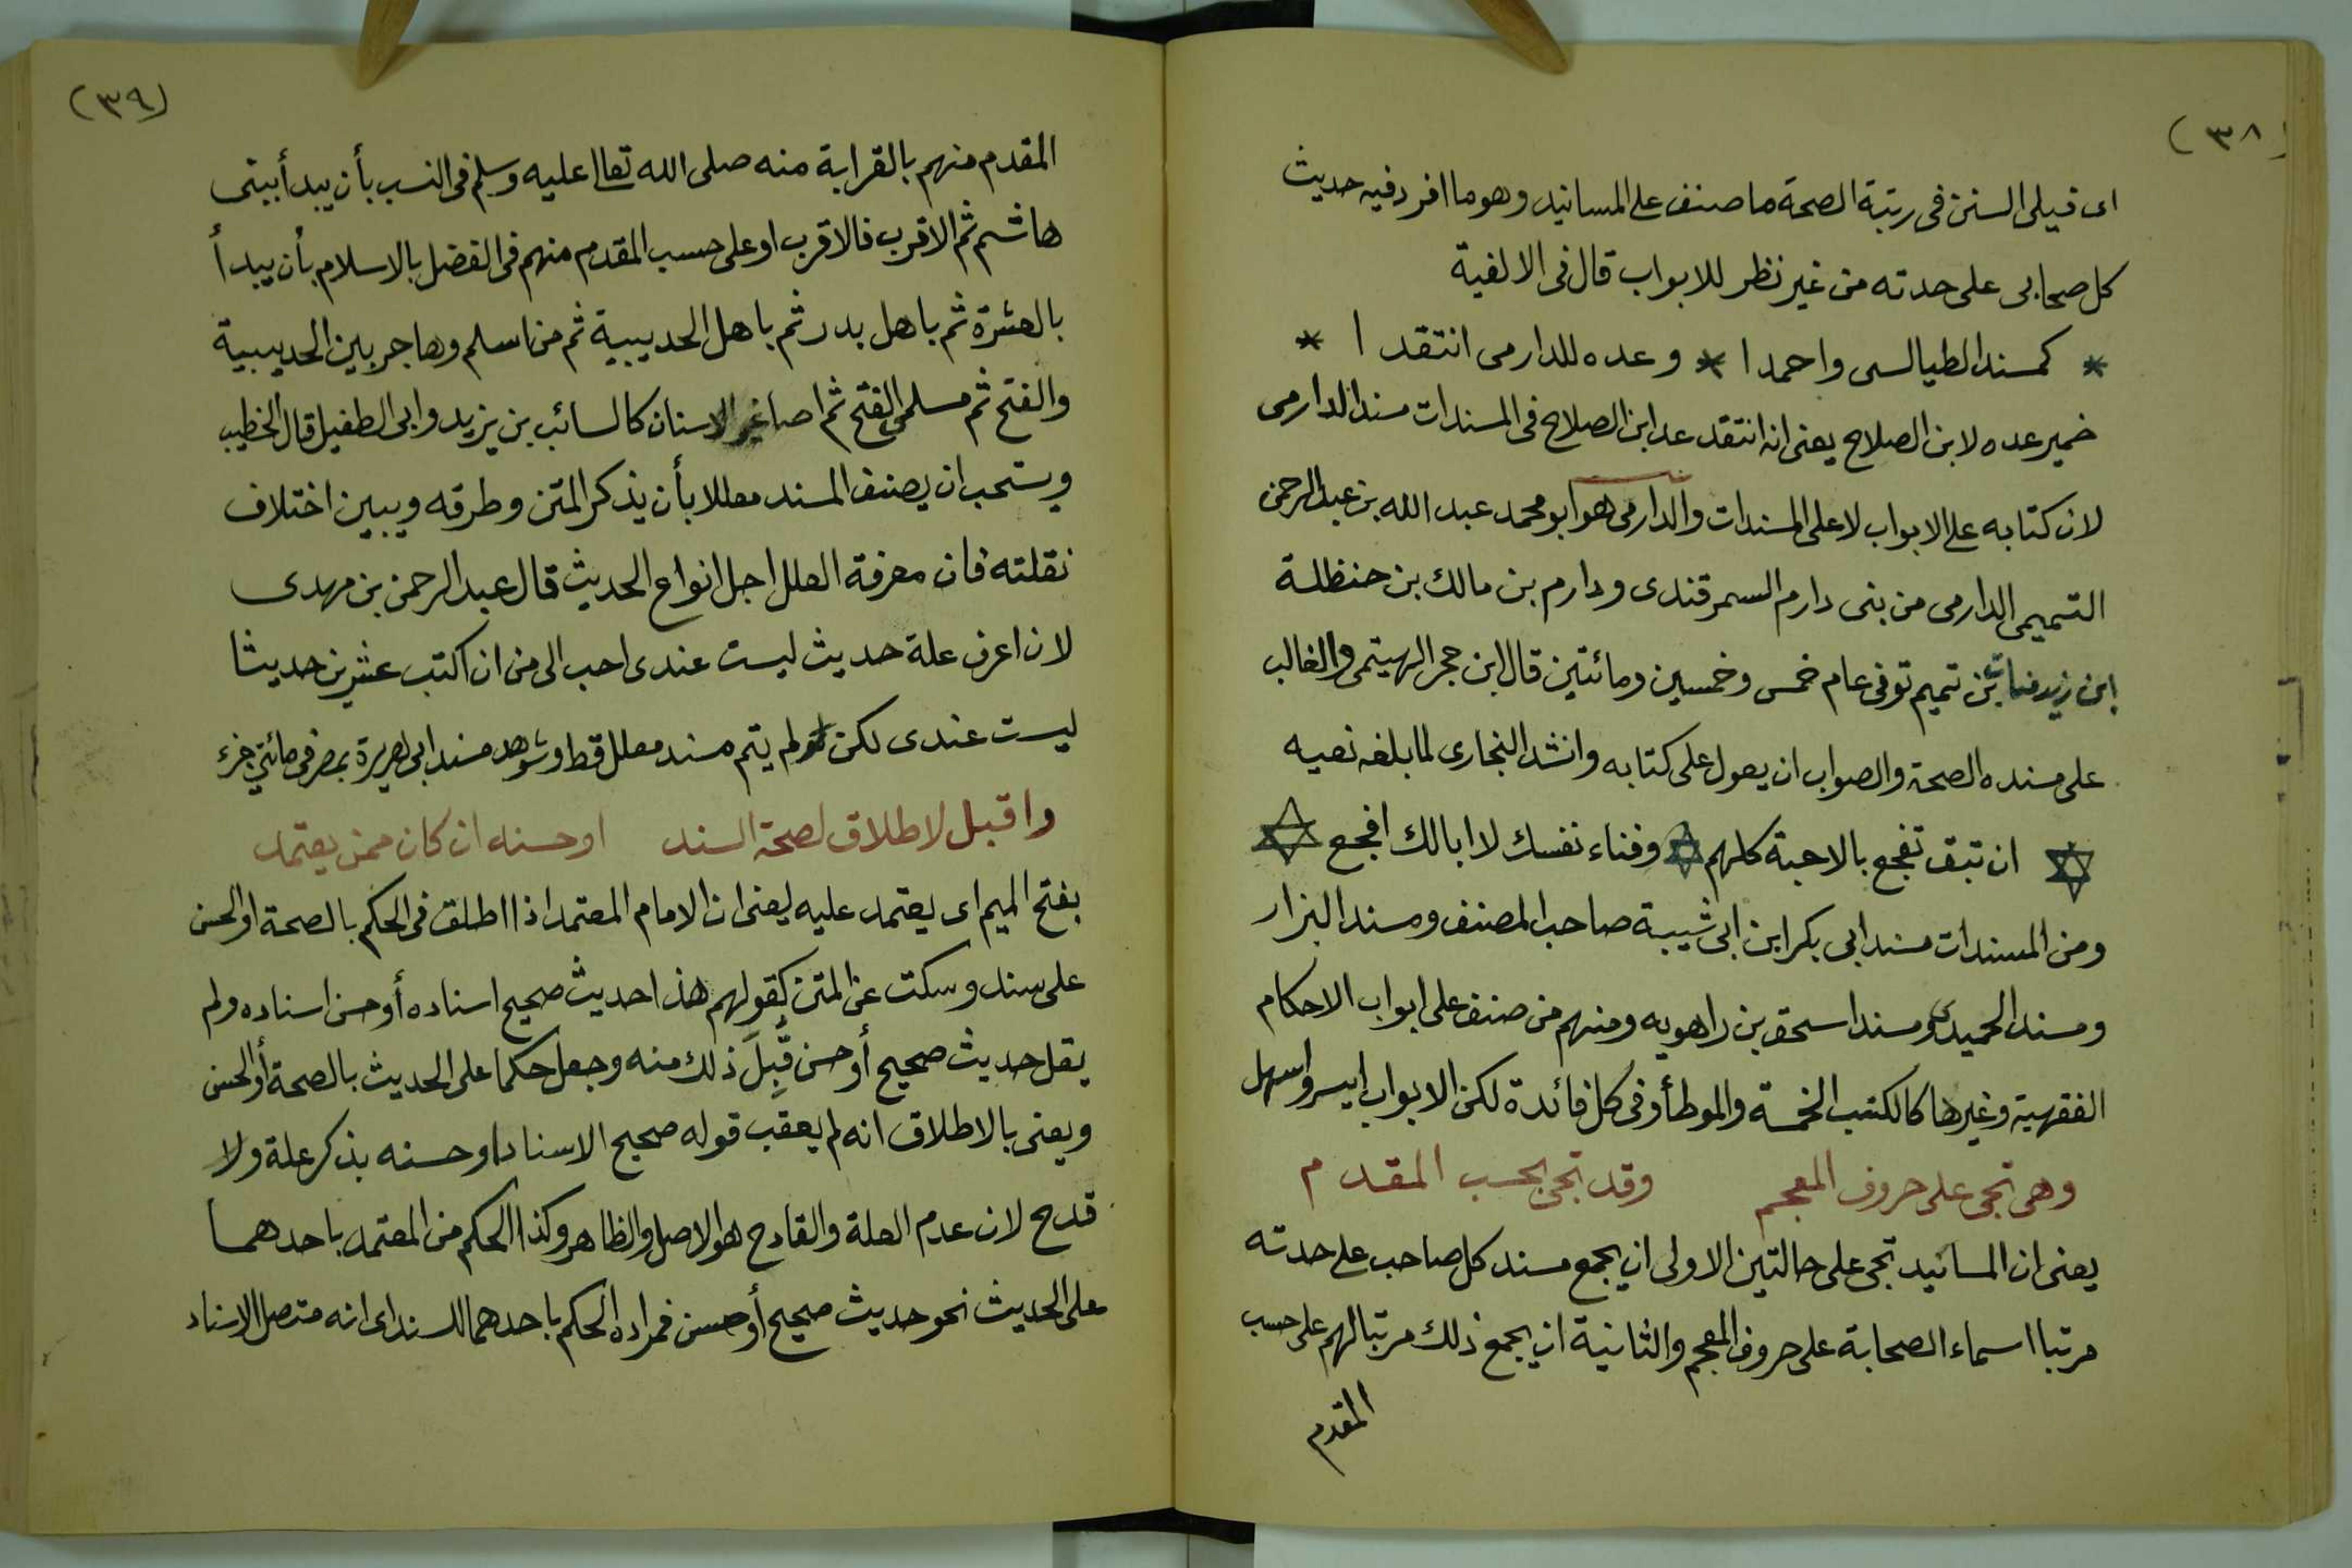 (٣٨)
اى فيلى السنن فى رتبة الصحة ما صنف على المسانيد وهو ما افرد فيه حديث
كل صحابى على حدته من غير نظر للابواب قال فى الالفية
* كمسند الطيالسى واحمدا * وعده للدارمى انتقدا *
ضمير عده لابن الصلاح يعنى انه انتقد عد ابن الصلاح فى المسندات مسند الدارمى
لان كتابه على الابواب لا على المسندات والدارمى هو ابو محمد عبد الله بن عبد الرحمن
التميمى الدارمى من بنى دارم السمرقندى ودارم بن مالك بن حنظلة
ابن زيد مناة بن تميم توفى عام خمس وخمسين ومائتين قال ابن حجر الهيتمى والغالب
على مسنده الصحة والصواب ان يعول على كتابه وانشد البخارى لما بلغه نعيه
ان تبق تفجع بالاحبة كلهم وفناء نفسك لا ابالك افجع
ومن المسندات مسند ابى بكر ابن ابى شيبة صاحب المصنف ومسند البزار
ومسند الحميدى ومسند اسحق بن راهويه ومنهم من صنف على ابواب الاحكام
الفقهية وغيرها كالكتب الخمسة والموطأ وفى كل فائدة لكن الابواب ايسر واسهل
وهى تجى على حروف المعجم وقد تجى بحسب المقدم
يعنى ان المسانيد تجى على حالتين الاولى ان يجمع مسند كل صاحب على حدته
مرتبا اسماء الصحابة على حروف المعجم والثانية ان يجمع ذلك مرتبا لهم على حسب
المقدم
(٣٩)
المقدم منهم بالقرابة منه صلى الله تعالى عليه وسلم فى النسب بأن يبدأ ببنى
هاشم ثم الاقرب فالاقرب او على حسب المقدم منهم فى الفضل بالاسلام بأن يبدأ
بالعشرة ثم باهل بدر ثم باهل الحديبية ثم من اسلم وهاجر بين الحديبية
والفتح ثم مسلمى الفتح ثم اصاغر الاسنان كالسائب بن يزيد وابى الطفيل قال الخطيب
ويستحب ان يصنف المسند معللا بأن يذكر المتن وطرقه ويبين اختلاف
نقلته فان معرفة العلل اجل انواع الحديث قال عبد الرحمن بن مهدى
لان اعرف علة حديث ليست عندى احب الى من ان اكتب عشرين حديثا
ليست عندى لكن لم يتم مسند معلل قط وشوهد مسند ابى هريرة بمصر فى مائتى جزء
واقبل لاطلاق لصحة السند او حسنه ان كان ممن يعتمد
بفتح الميم اى يعتمد عليه يعنى ان الامام المعتمد اذا اطلق فى الحكم بالصحة او الحسن
على سند وسكت عن المتن كقولهم هذا حديث صحيح اسناده أو حسن اسناده ولم
يقل حديث صحيح أو حسن قُبِلَ ذلك منه وجعل حكما على الحديث بالصحة أو الحسن
ويعنى بالاطلاق انه لم يعقب قوله صحيح الاسناد او حسنه بذكر علة ولا
قدح لان عدم العلة والقادح هو الاصل والظاهر وكذا الحكم من المعتمد باحدهما
على الحديث نحو حديث صحيح أو حسن فمراده الحكم باحدهما للسند اى انه متصل الاسناد